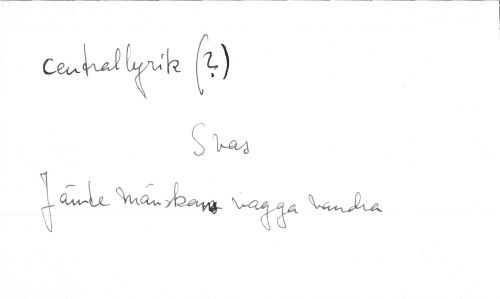 centrallyrik (?)
Svas
Jämte människans vagga vandra